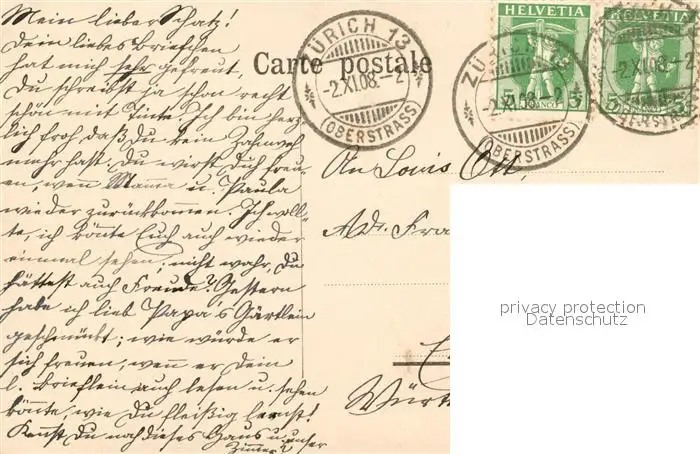 Mein lieber Schatz!
Dein liebes Briefchen
hat mich sehr gefreut,
Du schreibst ja schon recht
schön mit Tinte. Ich bin herz-
lich froh daß Du kein Zahnweh
mehr hast. Du wirst Dich freu-
en, wenn Mama u. Paula
wieder zurückkommen. Ich woll-
te, ich könnte Euch auch wieder
einmal sehen; nicht wahr, Du
hättest auch Freude? Gestern
habe ich lieb Papa's Gärtlein
geschmückt; wie würde er
sich freuen, wenn er Dein
l. Brieflein auch lesen u. sehen
könnte, wie Du fleißig lernst!
Kennst Du noch dieses Haus u. unser
Zimmer?
Carte postale
ZÜRICH 13
-2.XI.08.-2
(OBERSTRASS)
HELVETIA
5
5
ZÜRICH
-2.XI.08.-2
(OBERSTRASS)
HELVETIA
5
5
-2.XI.08.-2
An Louis Ott,
Adr. Fra
Württ
privacy protection
Datenschutz